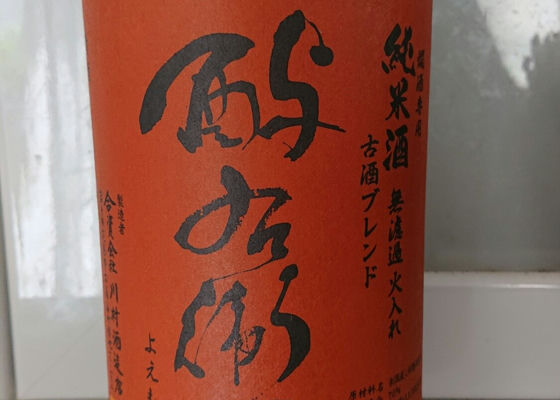 燗酒専用
純米酒 無濾過 火入れ
古酒ブレンド
酉与右衛
よえも
製造者
合資会社川村酒造店
原材料名